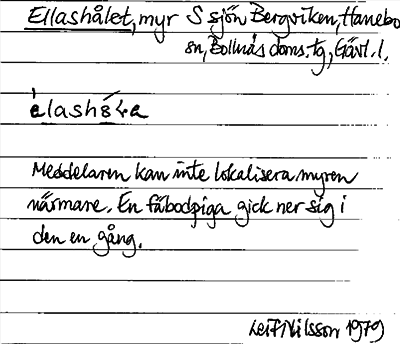 Ellashålet, myr S sjön Bergviken, Hanebo
sn, Bollnäs doms. tg, Gävl. l.
Meddelaren kan inte lokalisera myren
närmare. En fäbodpiga gick ner sig i
den en gång.
Leif Nilsson 1979